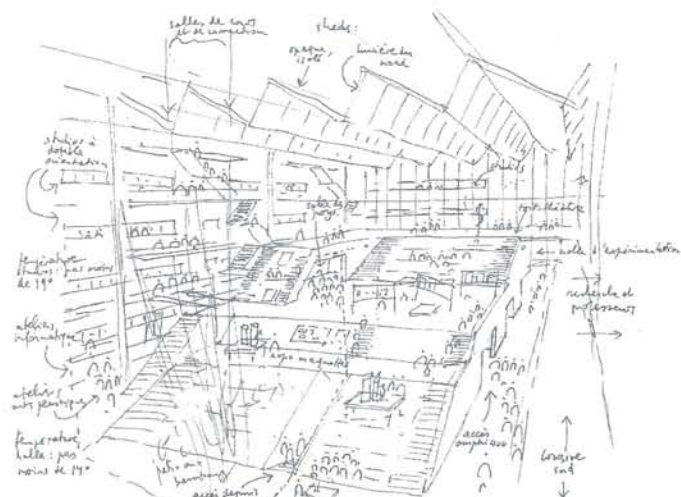 salles de cours
et de correction
sheds:
opaque,
isolé
lumière du
nord
studios à
double
orientation
studios
halle d'expérimentation
température
studios: pas moins
de 19°
recherche et
professeurs
ateliers
informatique
expo maquettes
ateliers
arts plastiques
température
halle: pas
moins de 14°
accès
amphi
accès depuis
sud